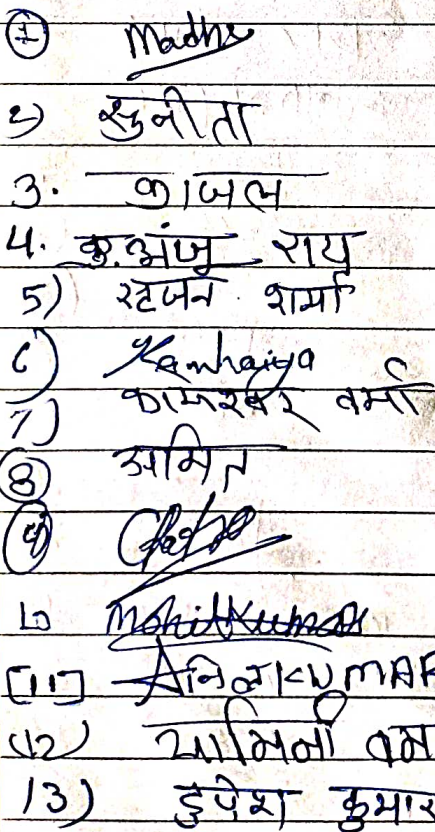 ① Madhu
2) सुनीता
3. काजल
4. कु. अंजु राय
5) शर्मा
6) Kanhaiya
7) वर्मा
⑧ अमित
⑨
10 Mohit Kumar
[11] अनिल KUMAR
(12) यामिनी
13) डुपेश कुमार